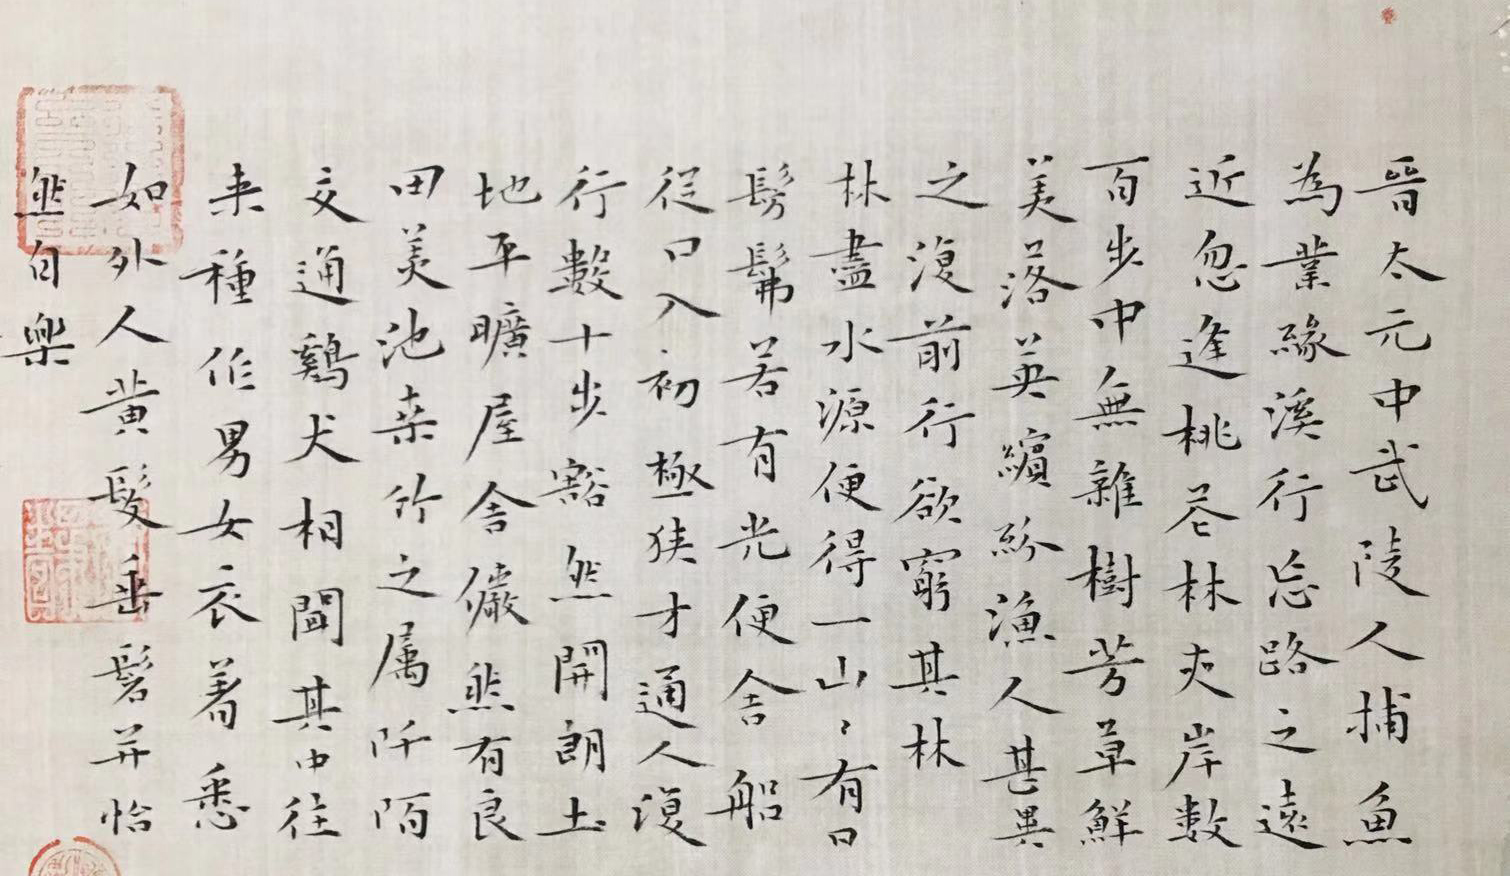 晉太元中武陵人捕魚
為業緣溪行忘路之遠
近忽逢桃花林夾岸數
百步中無雜樹芳草鮮
美落英繽紛漁人甚異
之復前行欲窮其林
林盡水源便得一山〻有口
髣髴若有光便舍船
從口入初極狹才通人復
行數十步豁然開朗土
地平曠屋舍儼然有良
田美池桑竹之属阡陌
交通鷄犬相聞其中往
来種作男女衣著悉
如外人黃髮垂髫并怡
然自樂